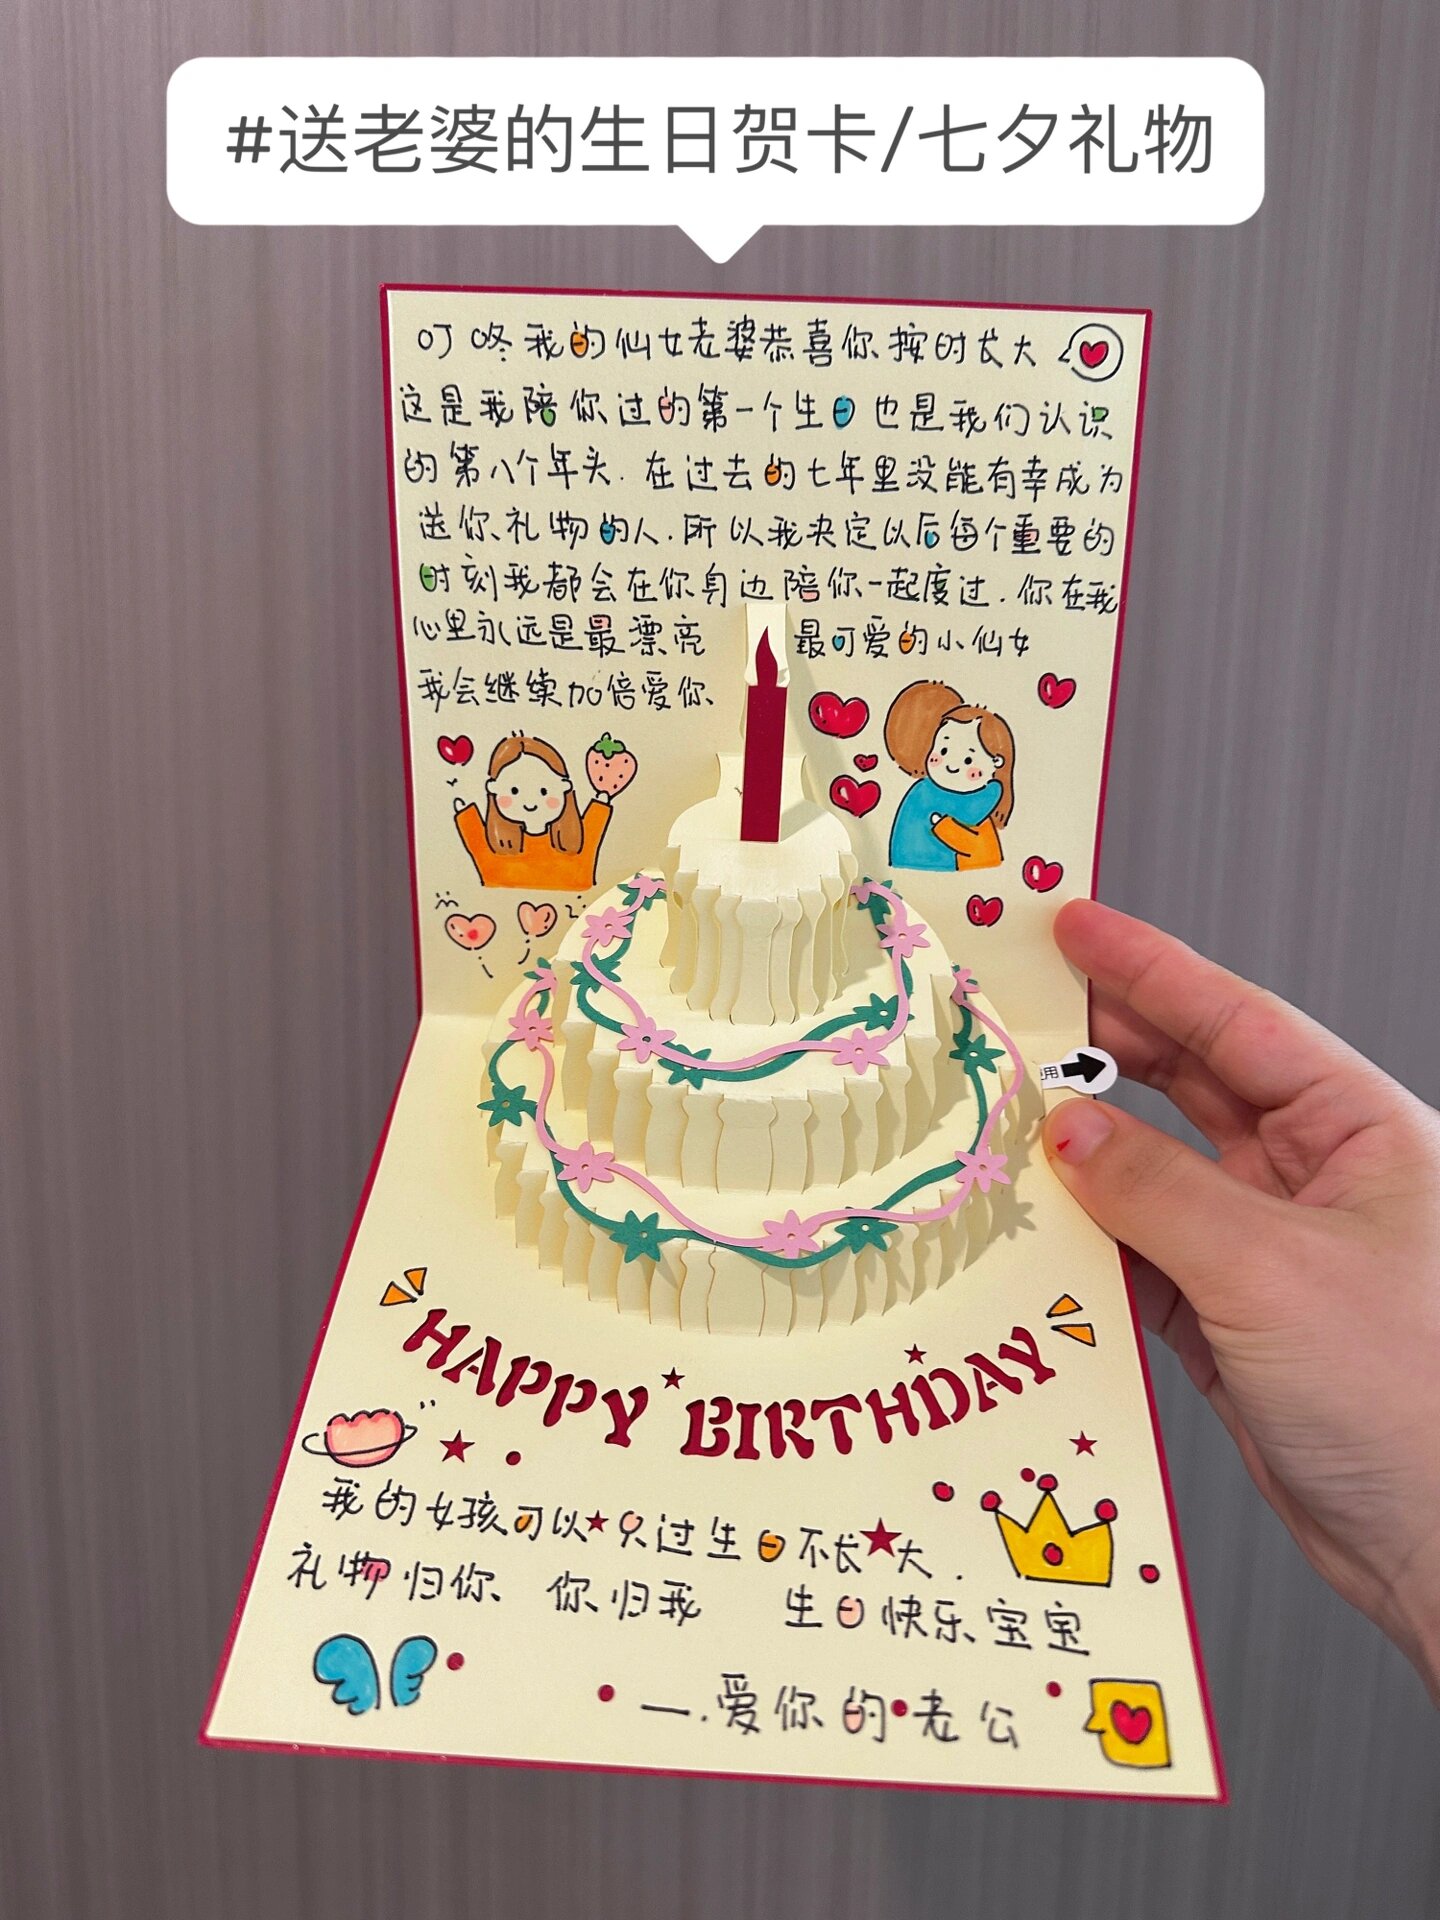 #送老婆的生日贺卡/七夕礼物
叮咚我的仙女老婆恭喜你按时长大
这是我陪你过的第一个生日也是我们认识
的第八个年头.在过去的七年里没能有幸成为
送你礼物的人.所以我决定以后每个重要的
时刻我都会在你身边陪你一起度过.你在我
心里永远是最漂亮 最可爱的小仙女
我会继续加倍爱你
用
HAPPY BIRTHDAY
我的女孩可以只过生日不长大.
礼物归你 你归我 生日快乐宝宝
一.爱你的老公